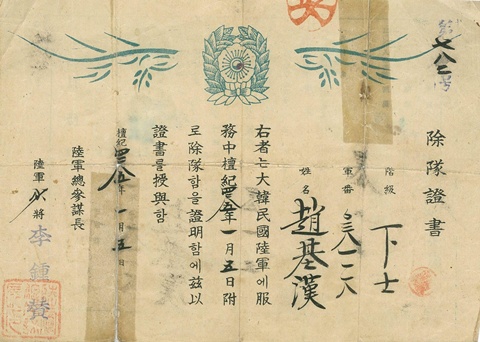 第七八二号
除隊證書
階級 下士
軍番
姓名 趙基漢
右者는大韓民國陸軍에服
務中檀紀 年一月五日附
로除隊함을證明함에玆以
證書를授與함
檀紀 年一月五日
陸軍總參謀長
陸軍少將 李鍾贊